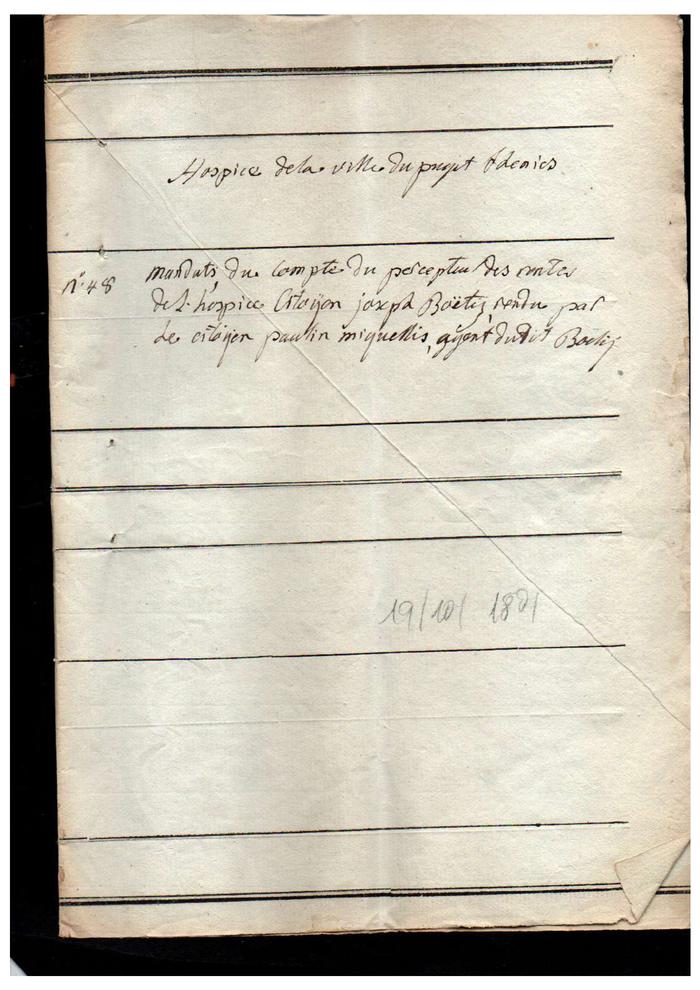 Hospice dela ville du puget théniers
n.° 48 mandats du Compte du percepteur des rentes
de L'hospice Citoyen joseph Boëtij, rendu par
Le citoyen paulin miquelis, agent dudit Boëtij
19/10/ 1801